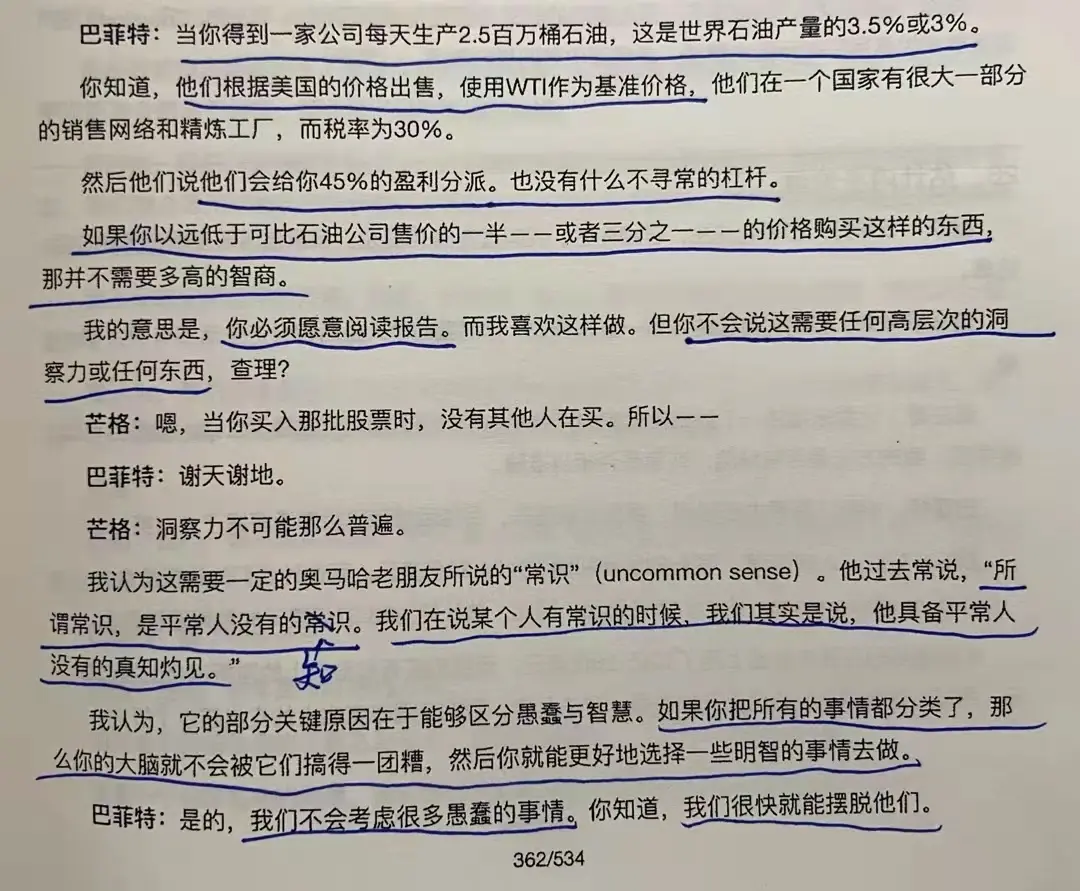 巴菲特：当你得到一家公司每天生产2.5百万桶石油，这是世界石油产量的3.5%或3%。
你知道，他们根据美国的价格出售，使用WTI作为基准价格，他们在一个国家有很大一部分
的销售网络和精炼工厂，而税率为30%。
然后他们说他们会给你45%的盈利分派。也没有什么不寻常的杠杆。
如果你以远低于可比石油公司售价的一半——或者三分之一——的价格购买这样的东西，
那并不需要多高的智商。
我的意思是，你必须愿意阅读报告。而我喜欢这样做。但你不会说这需要任何高层次的洞
察力或任何东西，查理？
芒格：嗯，当你买入那批股票时，没有其他人在买。所以——
巴菲特：谢天谢地。
芒格：洞察力不可能那么普遍。
我认为这需要一定的奥马哈老朋友所说的“常识”（uncommon sense）。他过去常说，“所
谓常识，是平常人没有的常识。我们在说某个人有常识的时候，我们其实是说，他具备平常人
没有的真知灼见。”
知
我认为，它的部分关键原因在于能够区分愚蠢与智慧。如果你把所有的事情都分类了，那
么你的大脑就不会被它们搞得一团糟，然后你就能更好地选择一些明智的事情去做。
巴菲特：是的，我们不会考虑很多愚蠢的事情。你知道，我们很快就能摆脱他们。
362/534